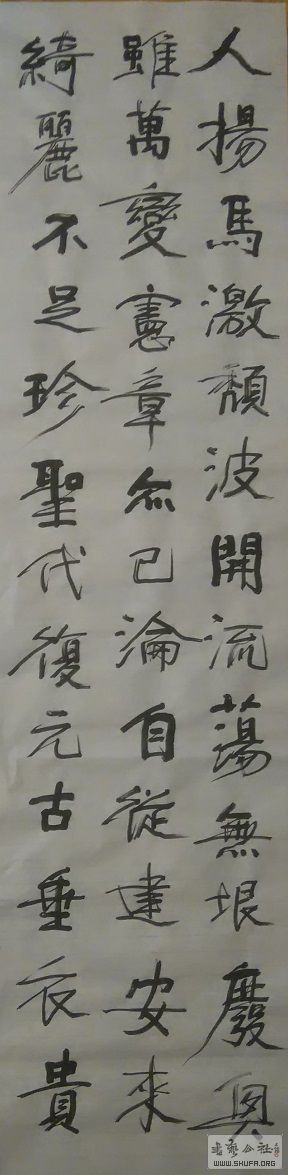 人揚馬激頹波開流蕩無垠廢興
雖萬變憲章亦已淪自從建安來
綺麗不足珍聖代復元古垂衣貴
WWW.SHUFA.ORG